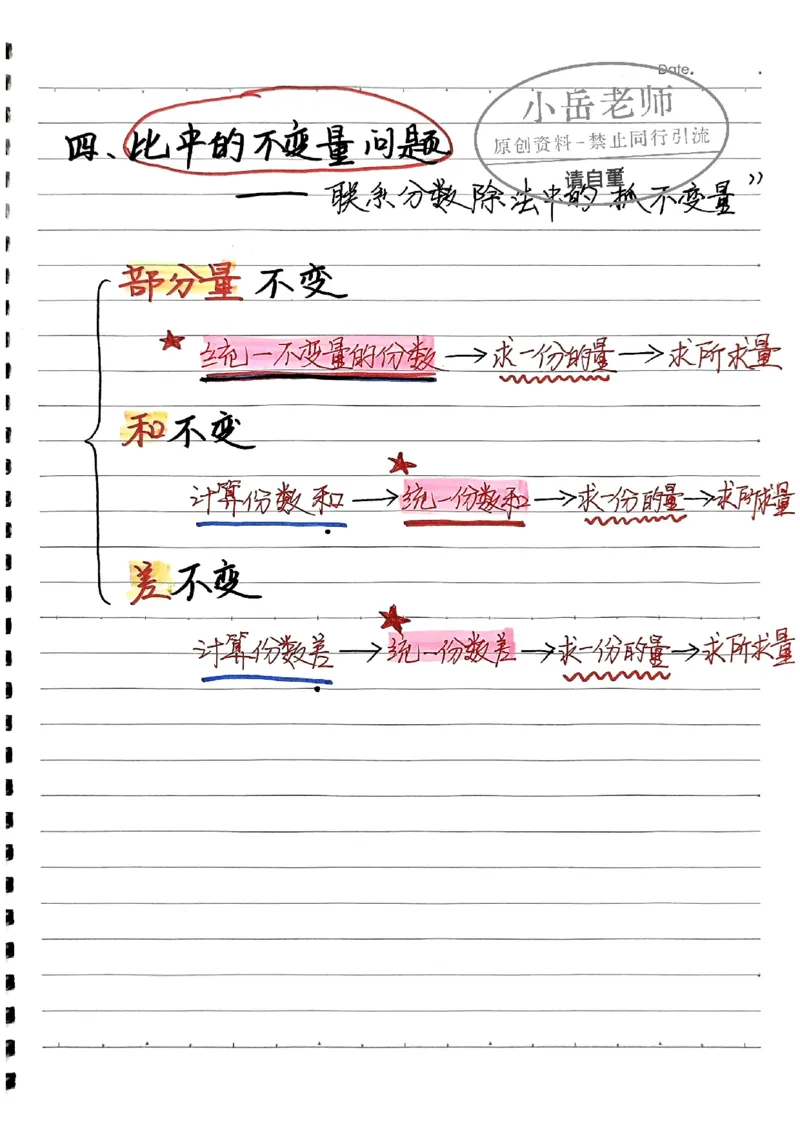 Date.
小岳老师
原创资料-禁止同行引流
请自重
四、比中的不变量问题
—— 联系分数除法中的"抓不变量"
部分量不变
★ 统一不变量的份数→求一份的量→求所求量
和不变
★
计算份数和→统一份数和→求一份的量→求所求量
差不变
★
计算份数差→统一份数差→求一份的量→求所求量